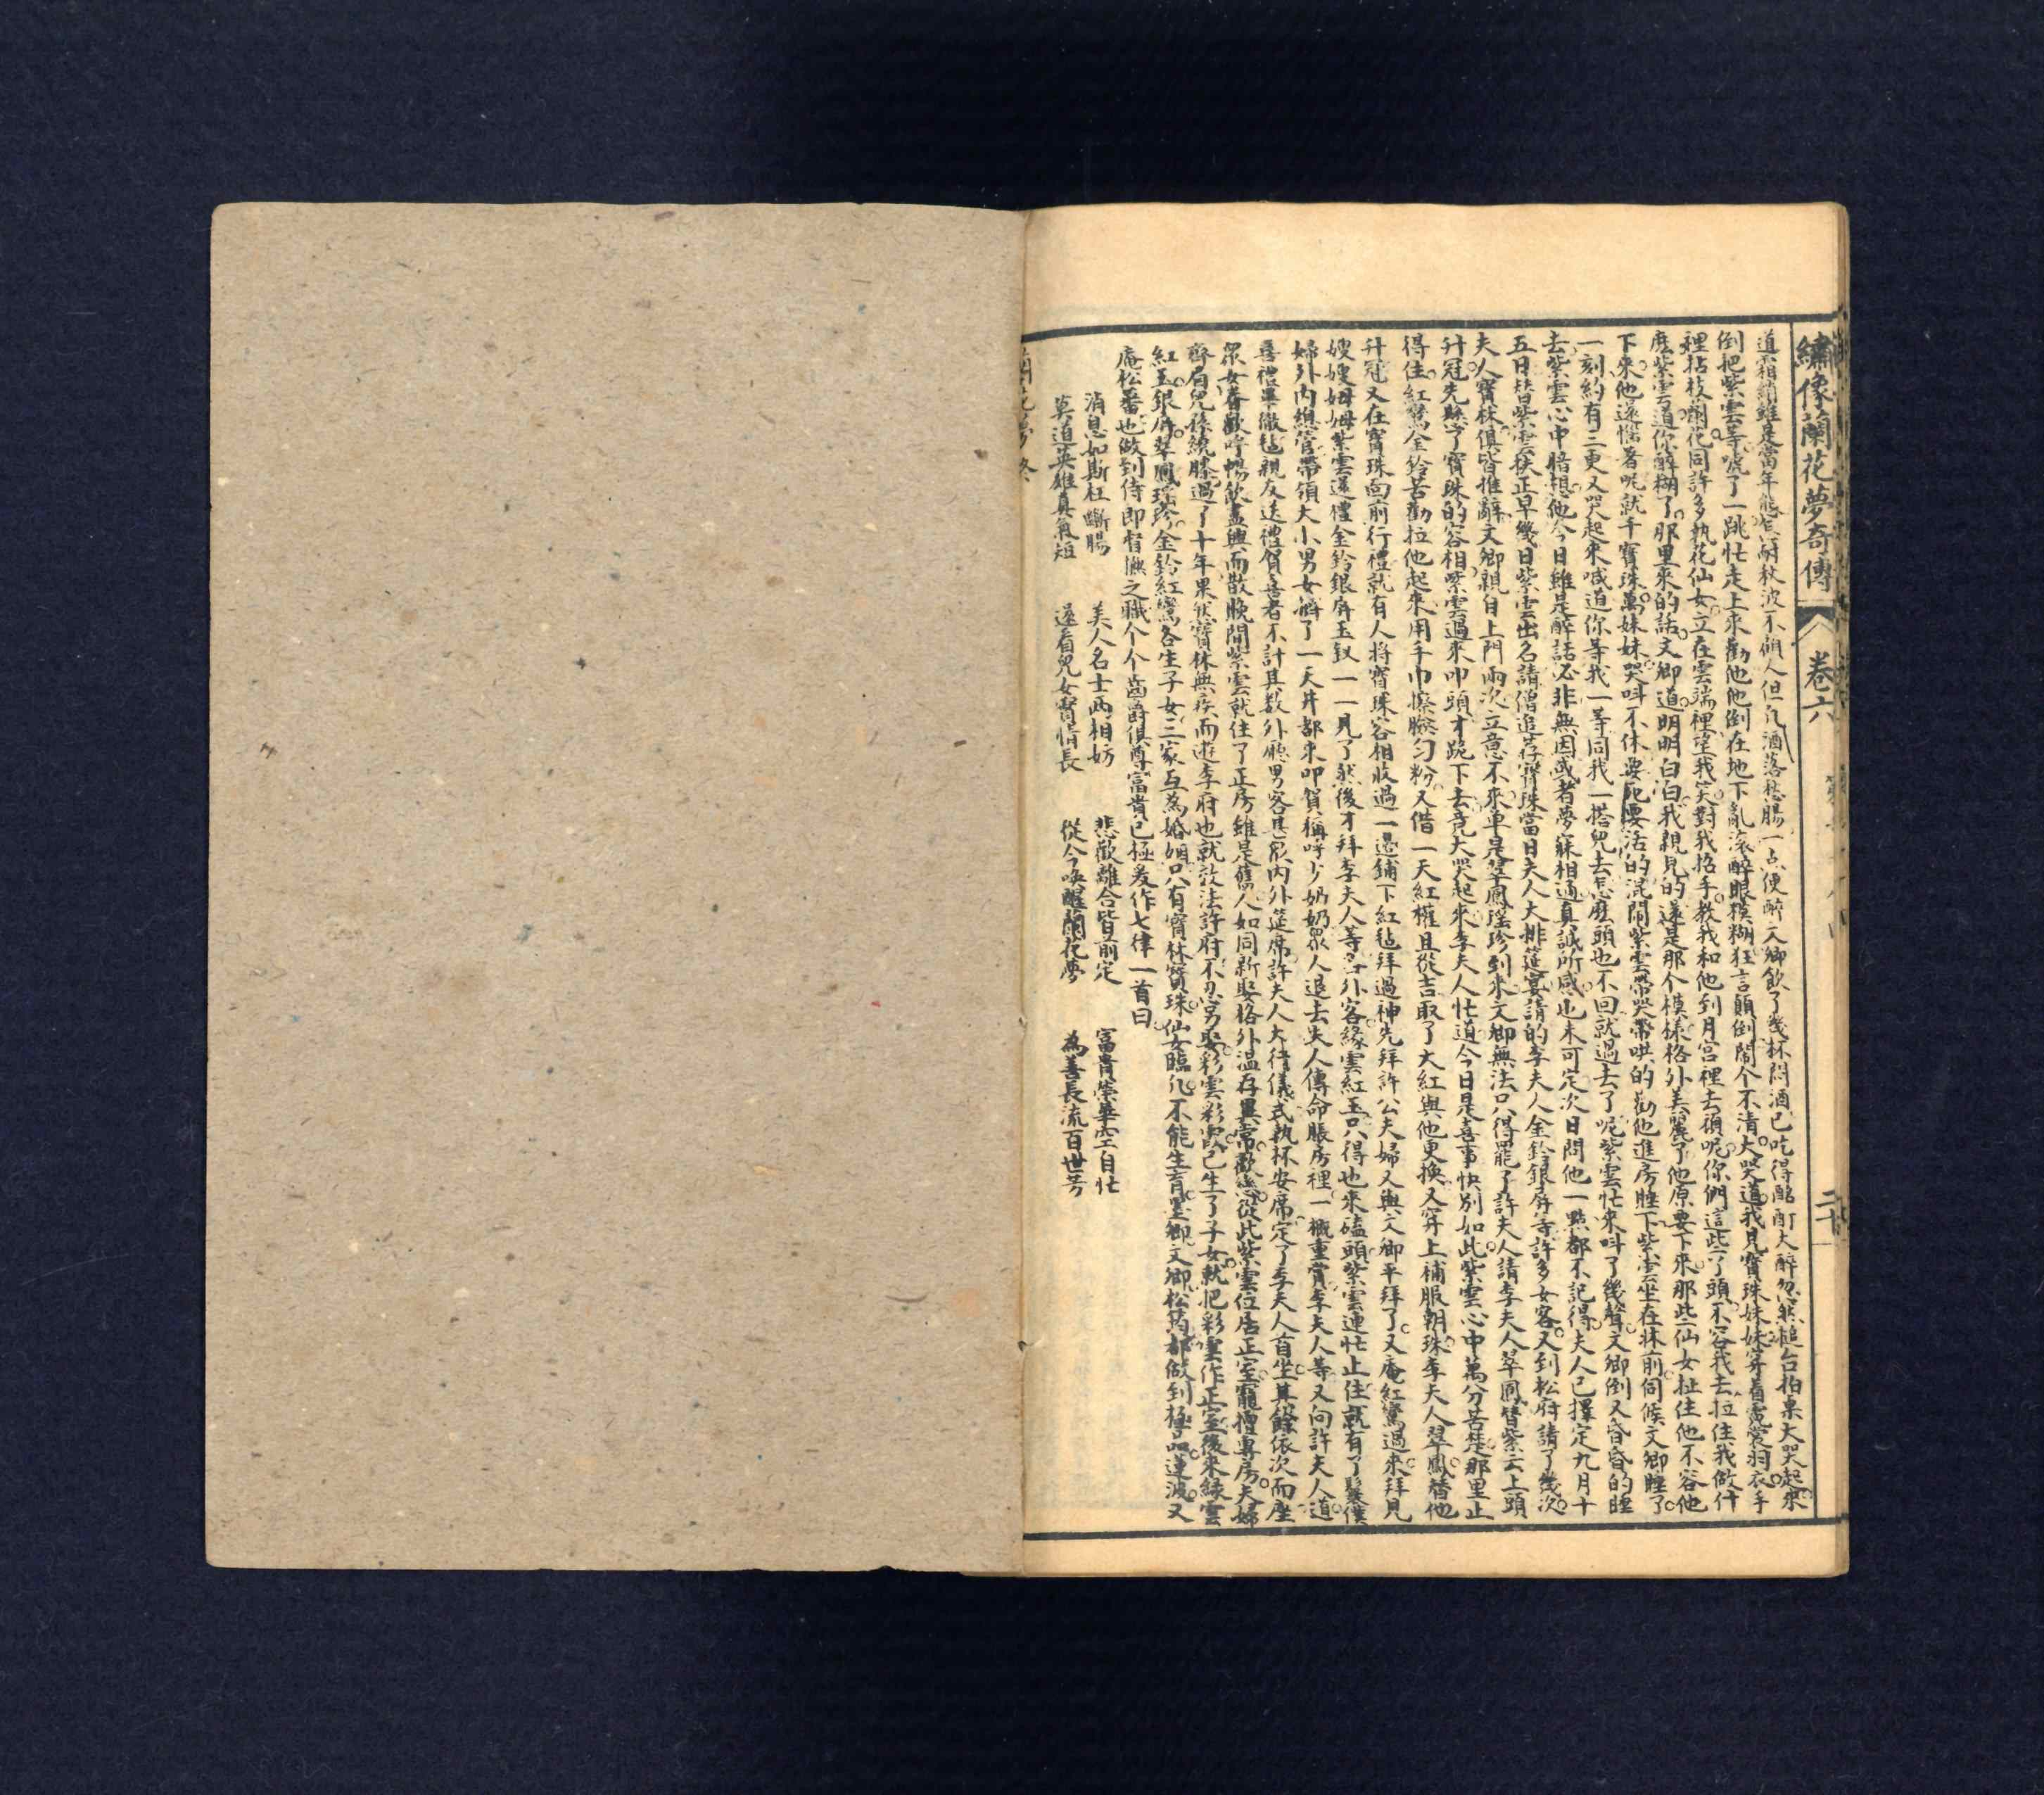 繡像蘭花夢奇傳 卷六 二十
道霜綃雖是當年態怎耐秋波不個人但凡酒落愁腸一点便醉文卿飲了幾杯悶酒已吃得酩酊大醉忽然搥台拍桌大哭起來
倒把紫雲等唬了一跳忙走上來勸他他倒在地下亂滾醉眼模糊狂言顛倒鬧个不清大哭道我見寶珠妹妹穿着霓裳羽衣手
裡拈枝蘭花同許多執花仙女立在雲端裡望我笑對我招手教我和他到月宮裡去頑呢你們這些了頭不容我去拉住我做什
庅紫雲道你醉糊了那里來的話文卿道明明白白我親見的還是那个模樣格外美麗了他原要下來那些仙女扯住他不容他
下來他還惱著呢就千寶珠萬妹妹哭叫不休要死要活的混鬧紫雲帶哭帶哄的勸他進房睡下紫雲坐在牀前伺候文卿睡了
一刻約有三更又哭起來喊道你等我一等同我一搭兒去怎麽頭也不回就過去了呢紫雲忙來叫了幾聲文卿倒又昏昏的睡
去紫雲心中暗想他今日雖是醉話必非無因或者夢寐相通真誠所感也未可定次日問他一點都不記得夫人已擇定九月十
五日替紫雲扶正早幾日紫雲出名請僧追荐寶珠當日夫人大排筵宴請的李夫人金鈴銀屏等許多女客又到松府請了幾次
夫人寶林俱皆推辭文卿親自上門兩次立意不來单是翠鳳瑶珍到來文卿無法只得罷了許夫人請李夫人翠鳳替紫云上頭
升冠先懸了寶珠的容相紫雲過來叩頭才跪下去竟大哭起來李夫人忙道今日是喜事快別如此紫雲心中萬分苦楚那里止
得住紅鸞金鈴苦勸拉他起來用手巾擦臉勻粉又借一天紅權且從吉取了大紅與他更換又穿上補服朝珠李夫人翠鳳替他
升冠又在寶珠面前行禮就有人將寶珠容相收過一邊鋪下紅毡拜過神先拜許公夫婦又與文卿平拜了又庵紅鸞過來拜見
嫂嫂姆姆紫雲還禮金鈴銀屏玉釵一一見了然後才拜李夫人等各外客緣雲紅玉只得也來磕頭紫雲連忙止住就有了鬟僕
婦外內總管帶領大小男女擠了一天井都來叩賀稱呼少奶奶眾人退去夫人傳命賬房裡一概重賞李夫人等又向許夫人道
喜禮畢撤毡親友送禮賀喜者不計其數外廳男客具眾內外筵席許夫人大待儀式執杯安席定了李夫人首坐其餘依次而座
眾女眷歡呼暢飲盡興而散晚間紫雲就住了正房雖是舊人如同新娶格外溫存異常歡悉從此紫雲位居正室寵擅專房夫婦
齊眉兒孫繞膝過了十年果然寶林無疾而逝李府也就效法許府不忍另娶彩雲彩雲已生了子女就把彩雲作正室後來緣雲
紅玉銀屏翠鳳瑶珍金鈴紅鸞各生子女三家互為婚姻只有寶林寶珠仙女臨凡不能生育墨卿文卿松筠都做到極品蓮波又
庵松蕃也做到侍郎督撫之職个个齒爵俱尊富貴已極爰作七律一首曰
消息如斯枉斷腸 美人名士两相妨 悲歡離合皆前定 富貴榮華空自忙
莫道英雄真氣短 還看兒女實情長 從今喚醒蘭花夢 為善長流百世芳
蘭花夢終